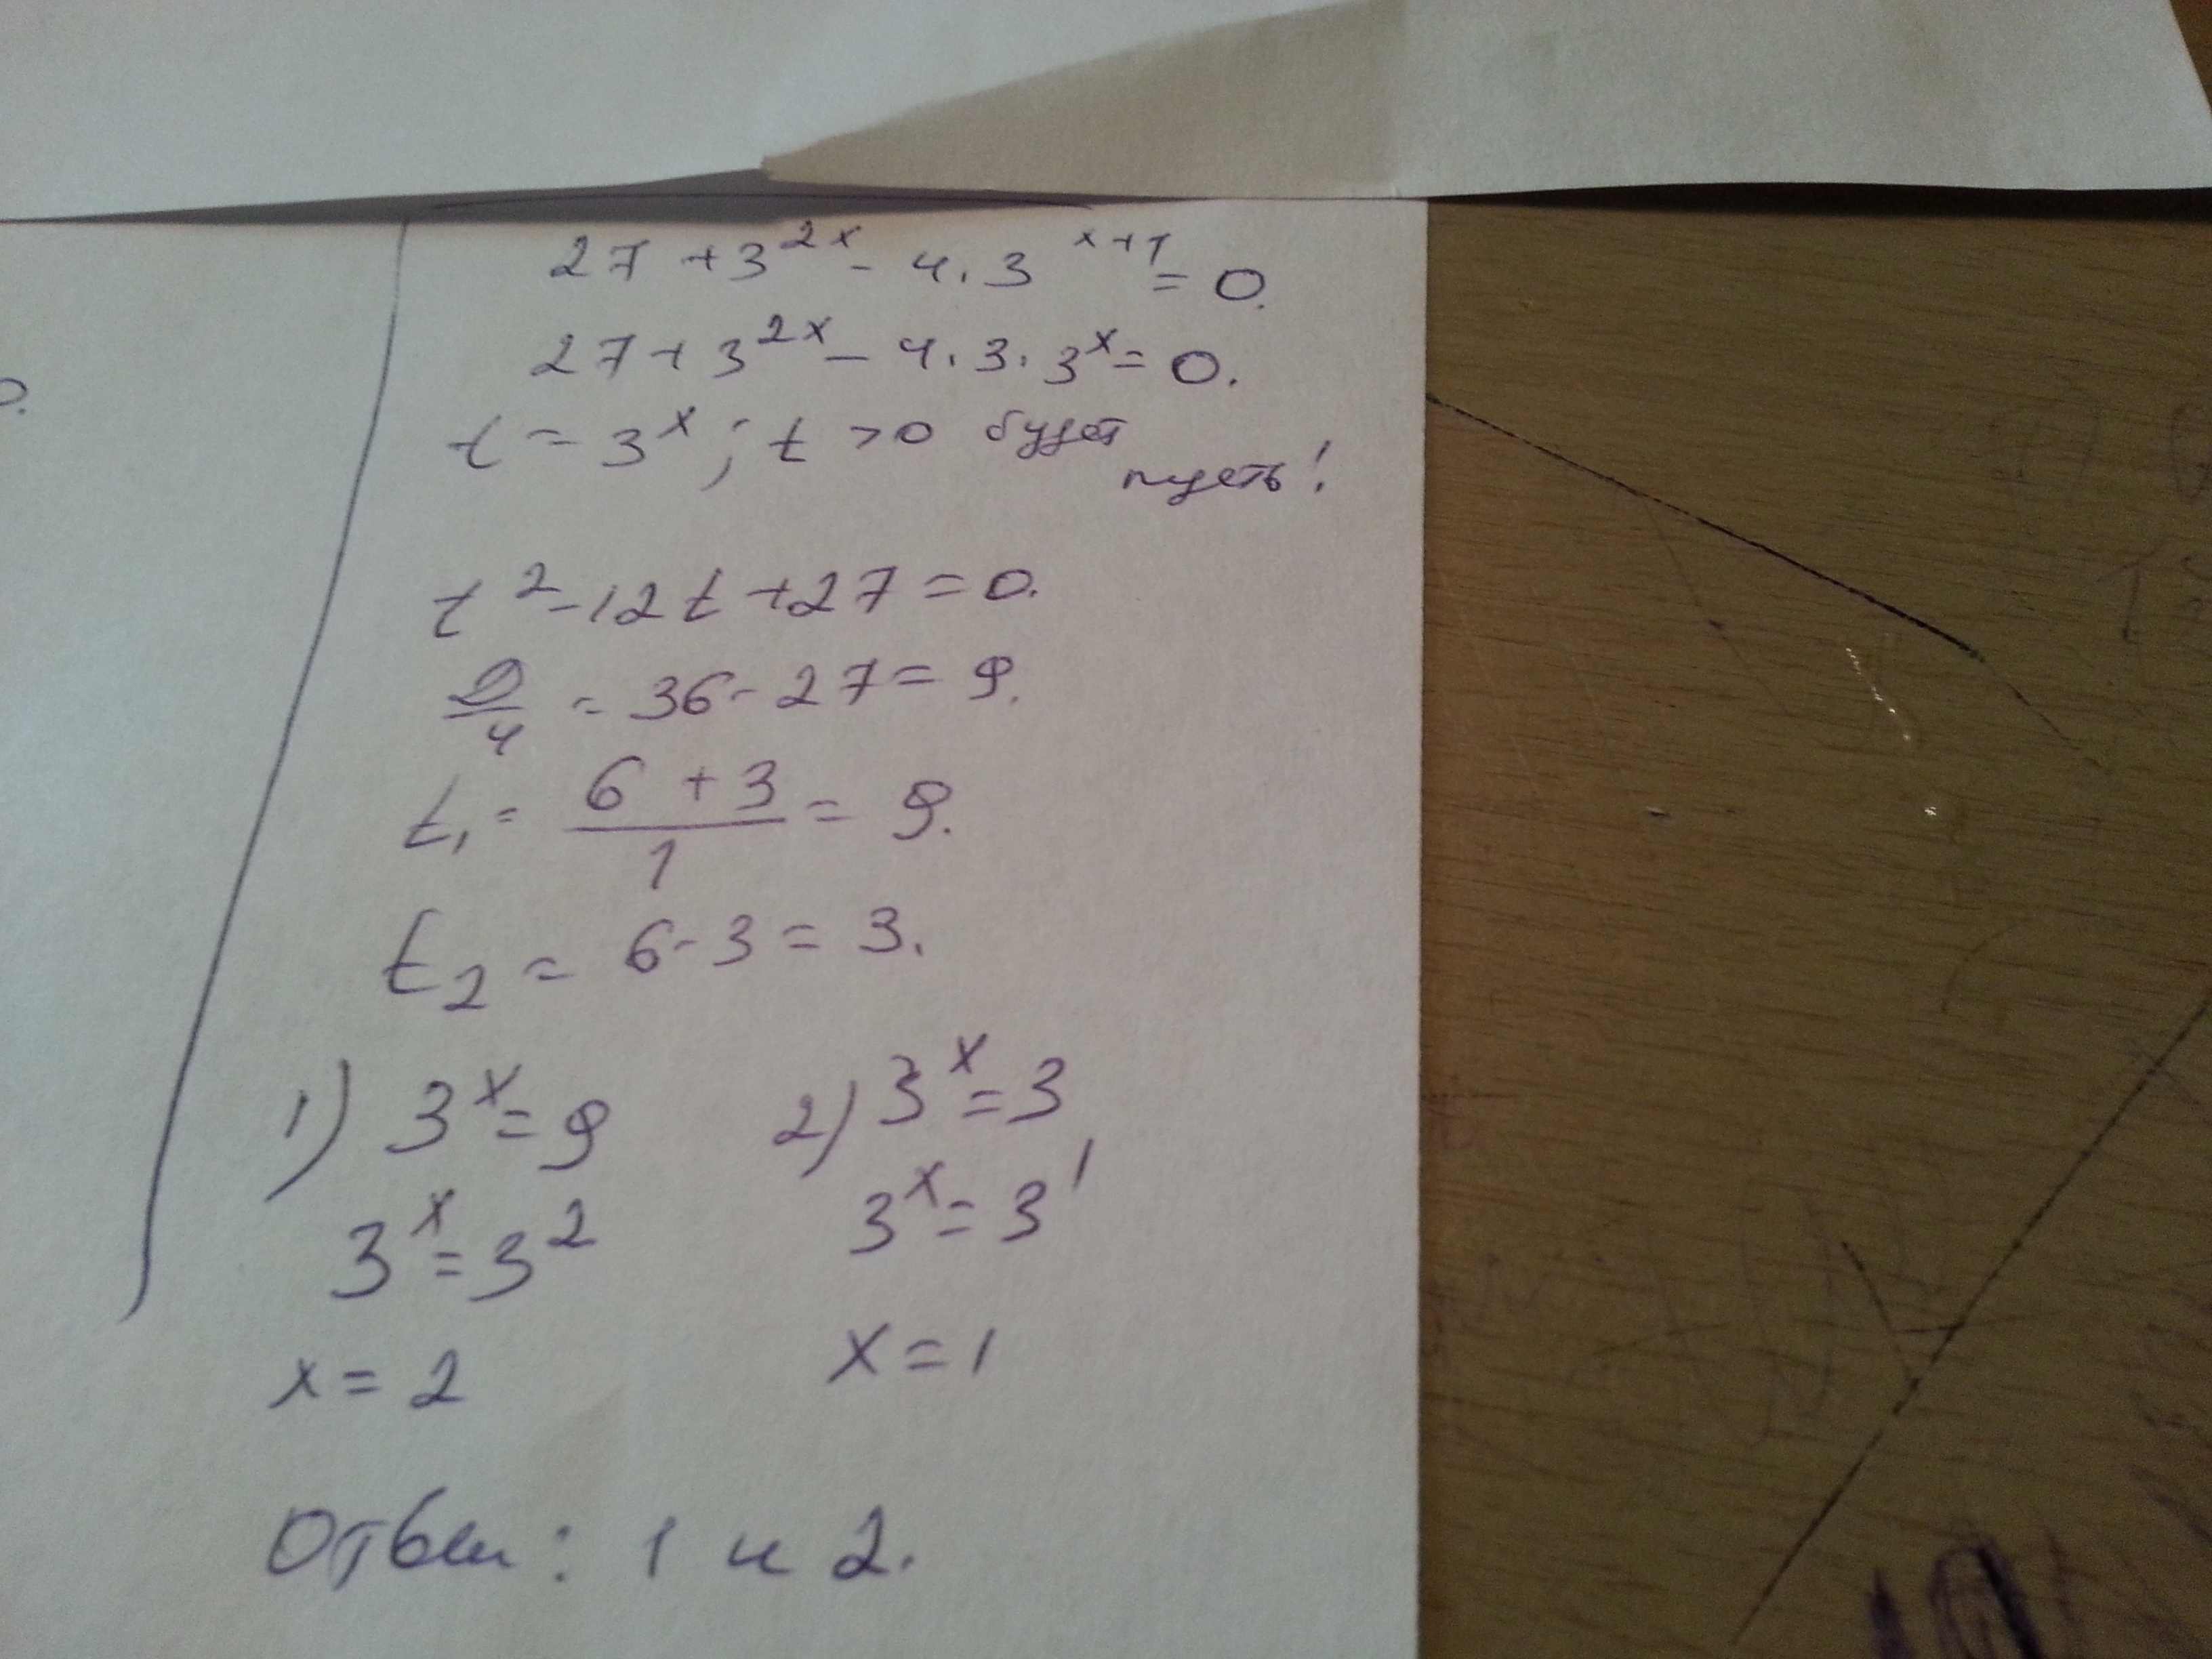 27 + 3^{2x} - 4 · 3^{x+1} = 0.
27 + 3^{2x} - 4 · 3 · 3^x = 0.
t = 3^x ; t > 0 будет
пусть!
t^2 - 12t + 27 = 0.
D/4 = 36 - 27 = 9.
t_1 = (6 + 3)/1 = 9.
t_2 = 6 - 3 = 3.
1) 3^x = 9 2) 3^x = 3
3^x = 3^2 3^x = 3^1
x = 2 x = 1
Ответ: 1 и 2.